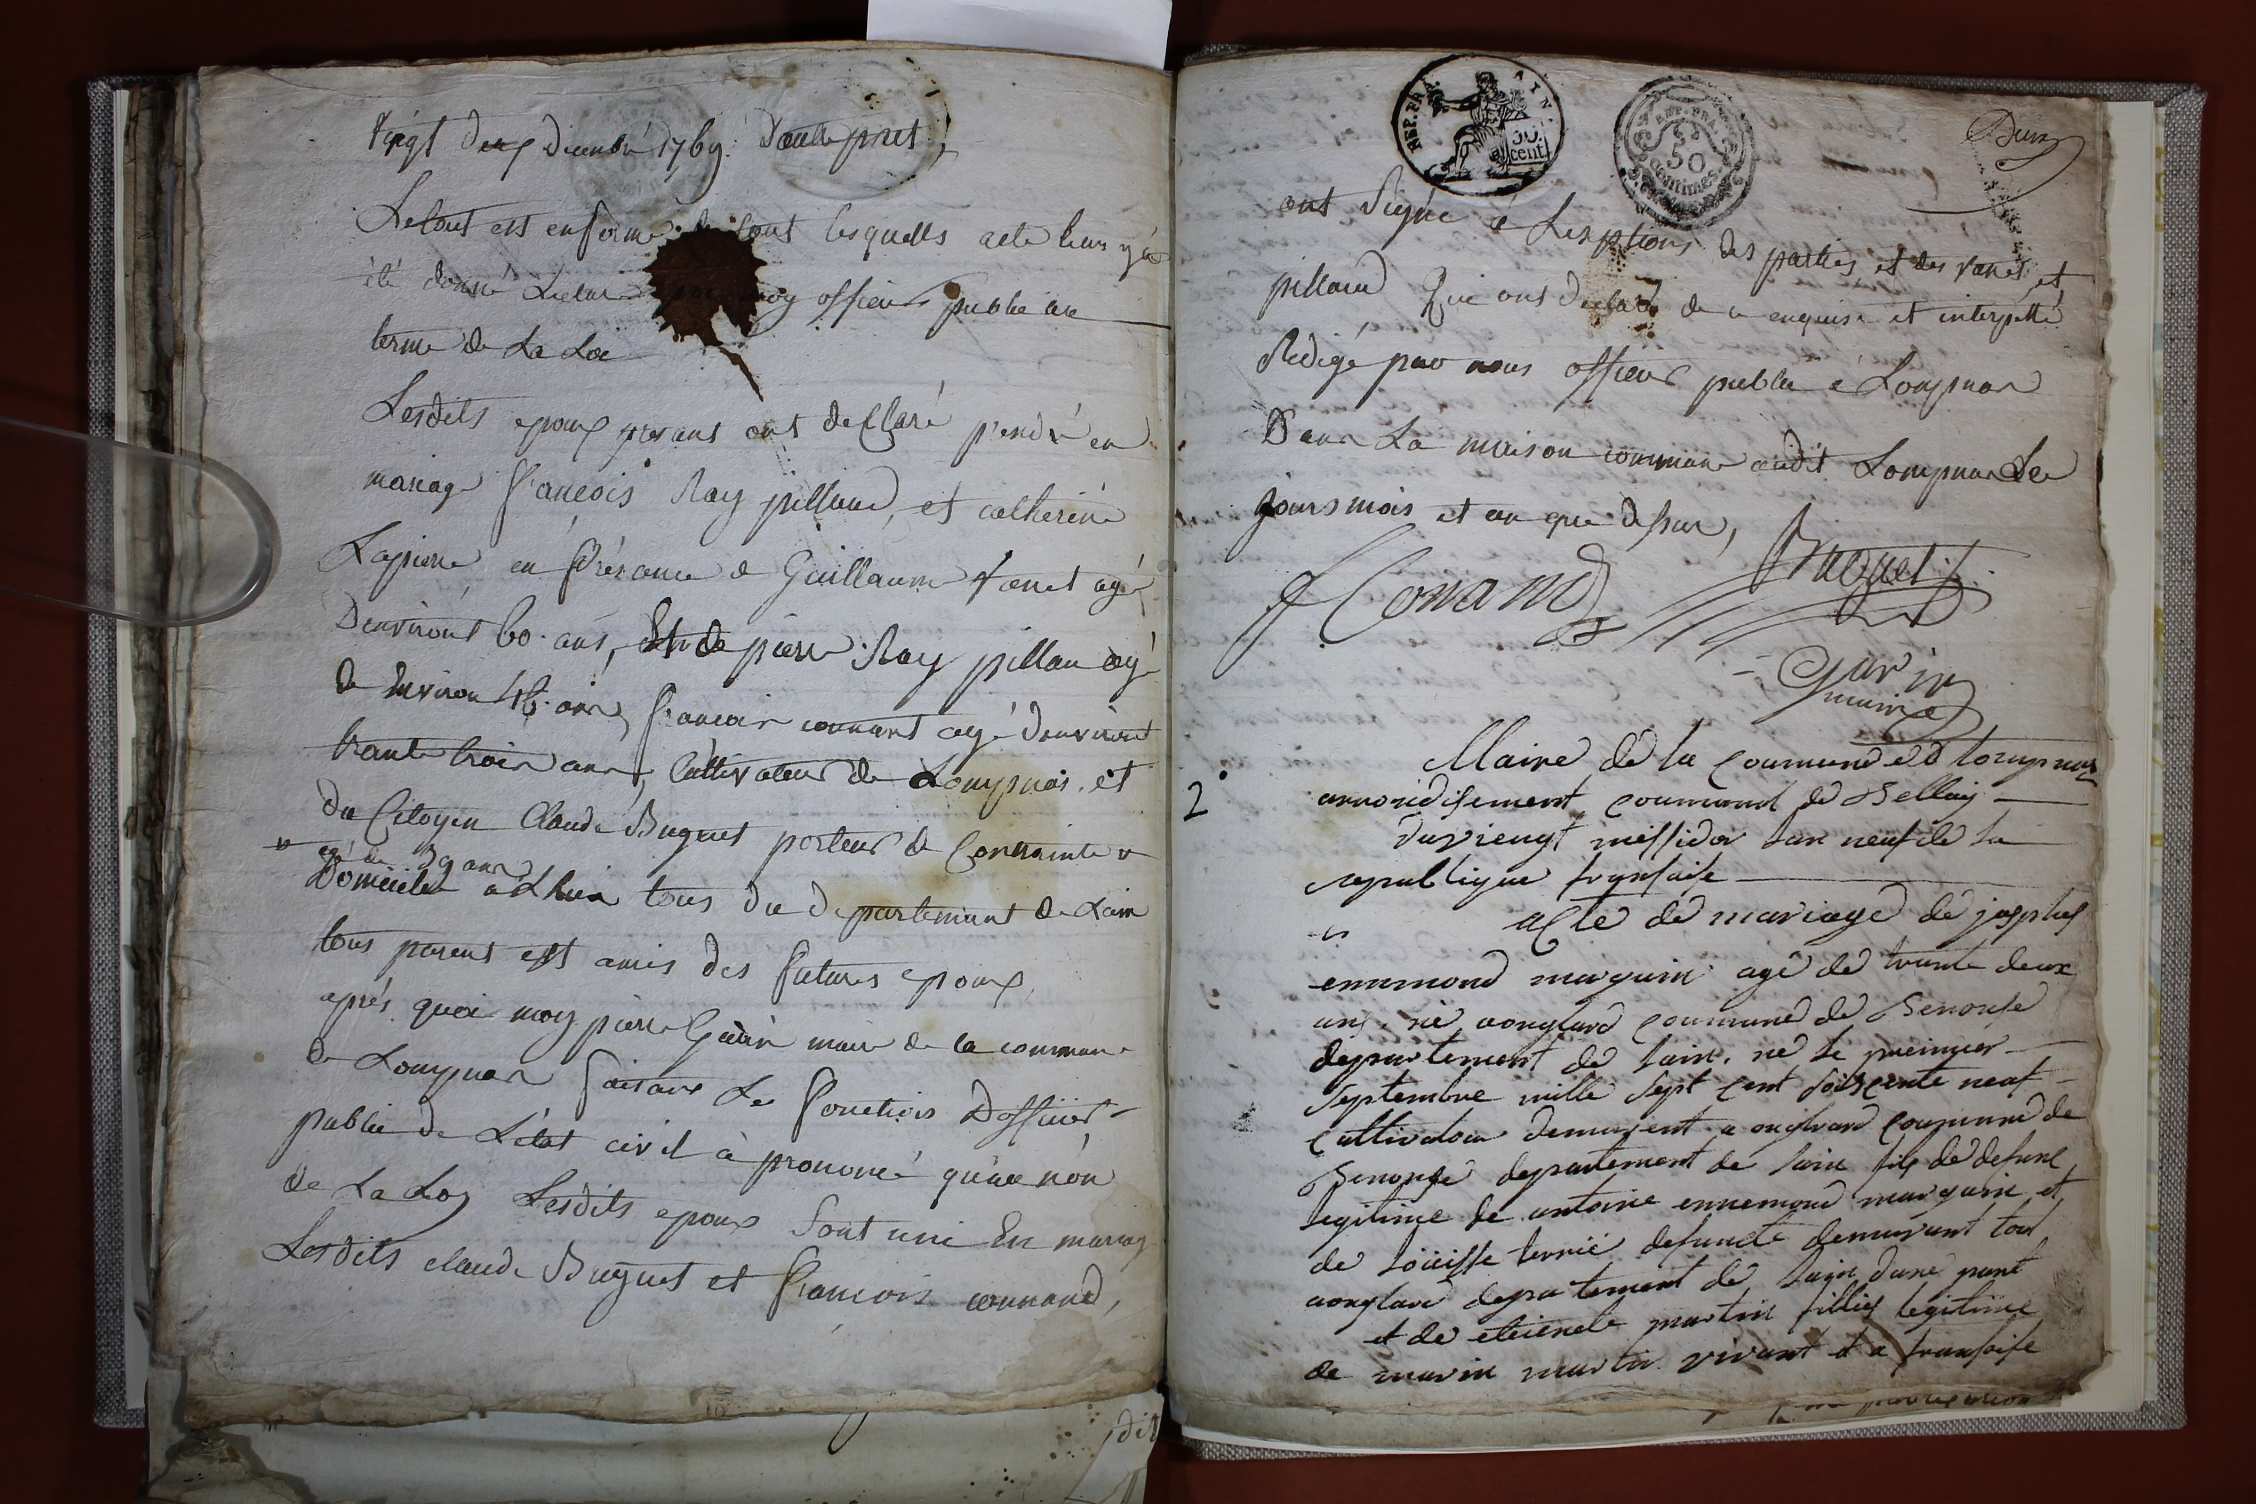 vingt deux decembre 1769. Dautre part,
Le tout est en forme de tout lesquells acte leur y a
été donné Lecture par moy officier public au
terme de La Loi
Lesdits epoux presant ont declaré prendre en
mariage francois Ray pilloud, et catherine
Lapierre en présance de Guillaume vanet agé
D'environt 60 ans, Et de pierre Ray pillou agé
de Environ 46 ans, francois connant agé denviront
trante trois ans, Cultivateur de Lompnas, et
du Citoyen Claude Buguet porteur de Contrainte
agé de 39 ans
Domicilié a Lhuis tous du departement de Lain
tous parent est amis des futures epoux,
aprés quoi moy pierre Garin maire de la commune
de Lompnas faisant Les fonctions D'officier
public de Létat civil à prononcé qu'au nón
de La Loy Lesdits epoux sont uni En mariage
Lesdits claude Buguet et francois connand,
Deux
REP. FRA. AIN.
50 cent
REP. FRA.
50
centimes
ont Signé a Lexptions des parties et des vanet, et
pilloud Que ont declaré de ce enquise et interpellé
Redigé par nous officier public a Lompnas
Dans La maison commune audit Lompnas Les
jours mois et an que dessus,
f Conand
Buguet
Garin
maire
2°
Maire de la Commune de Lompnas
arrondisement communal de Bellay
du viengt messidor lan neuf de la
republique fransaise
acte de mariage de josephes
ennemond marguin agé de trante deux
ans, né aonglard commune de Benonse
departement de lain, né le preimier
septembre mille sept cent soiscente neuf
Cultivatour demeurent a onglard Commune de
Benonse departement de lain fils de defunt
legitime de antoine ennemond marguin et
de loüisse ternié defuncte demeurant tout
aonglard departement de lain dune part
et de etienete martin fillies legitime
de marin martin vivant et a fransoise